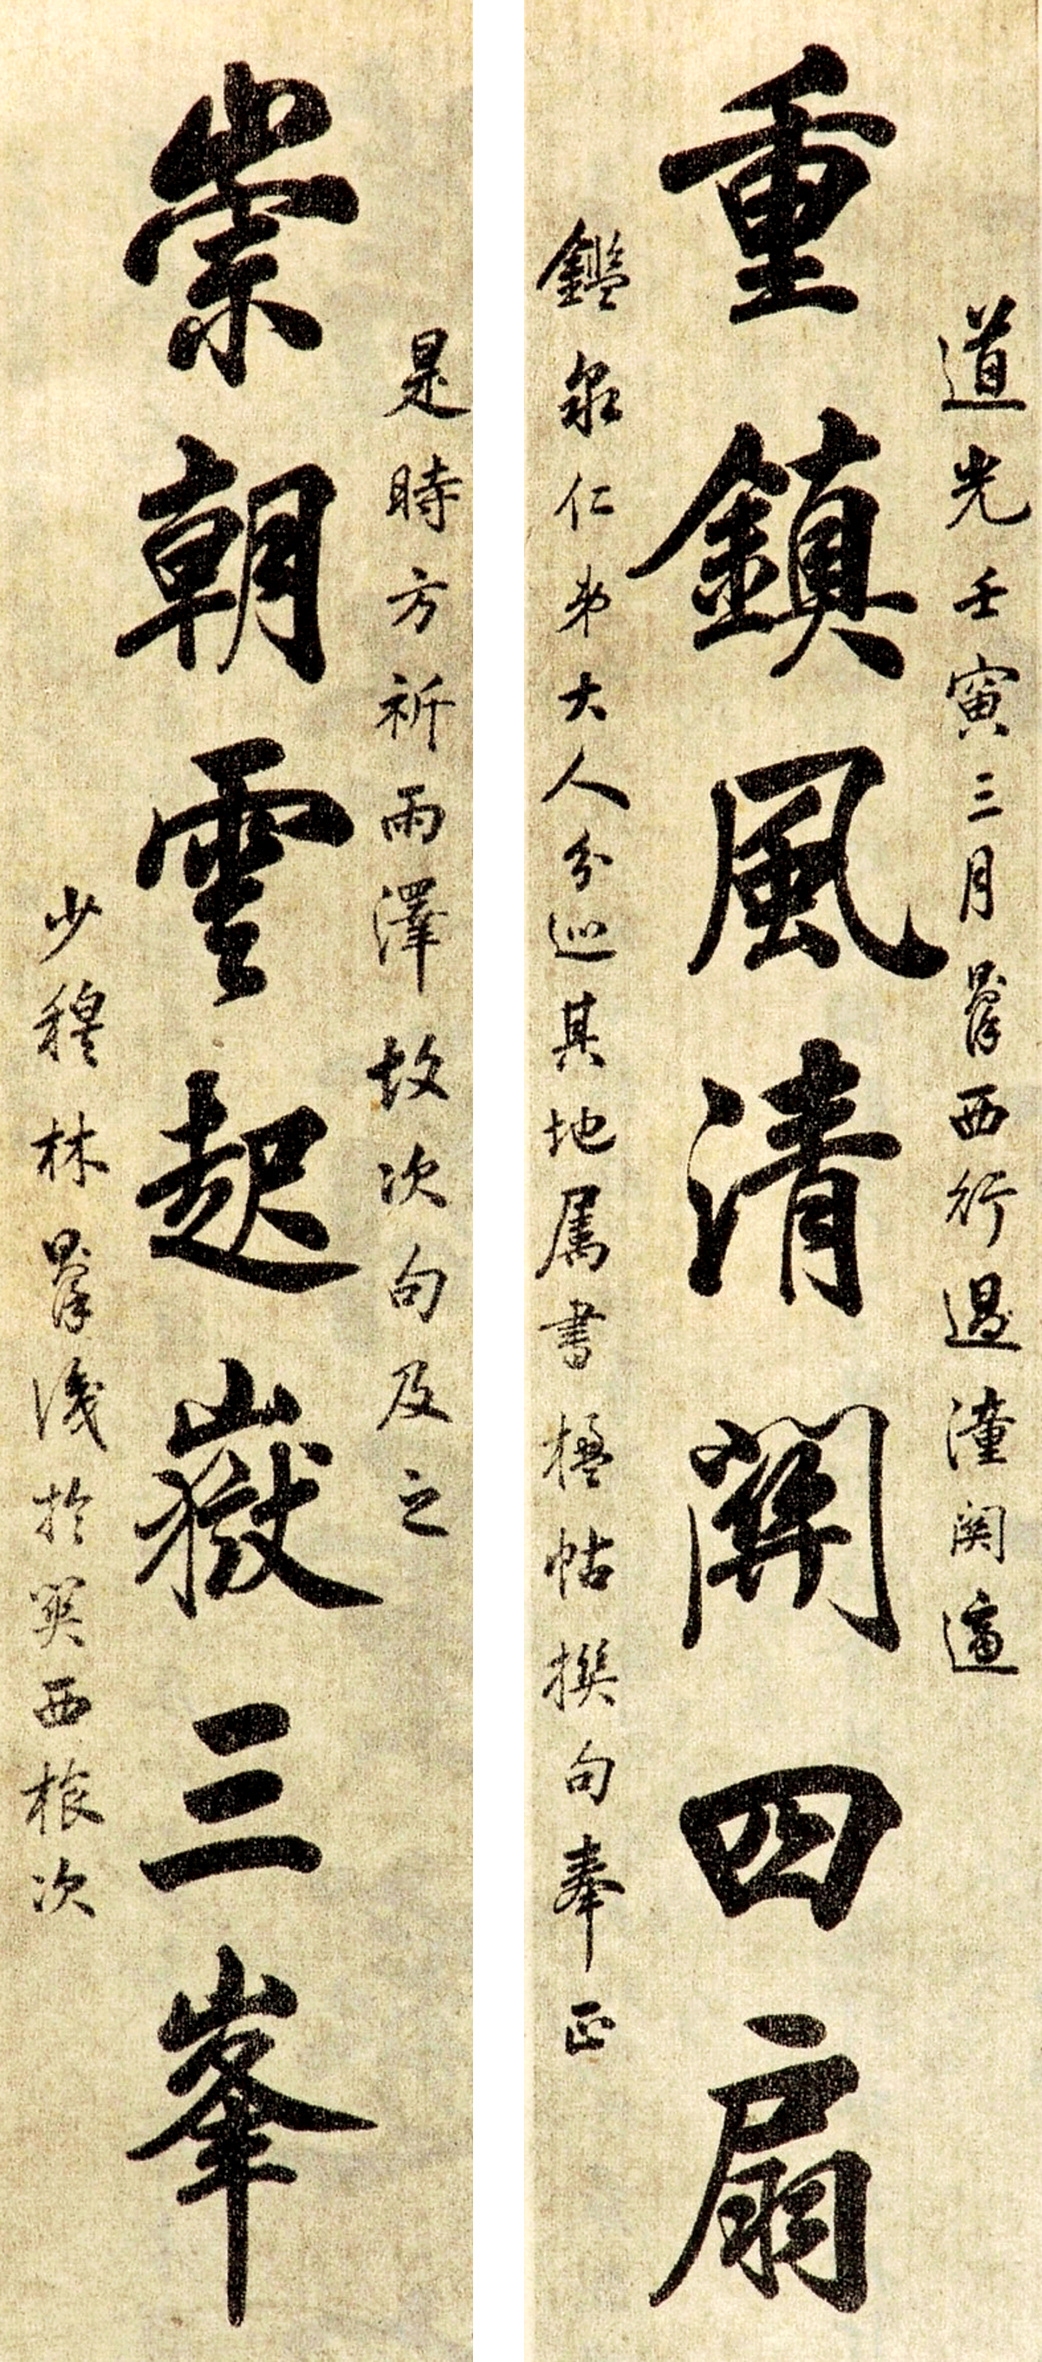 道光壬寅三月則徐西行過潼関適
重鎮風清關四扇
鑑泉仁弟大人分巡其地属書楹帖撰句奉正
是時方祈雨澤故次句及之
崇朝雲起嶽三峯
少穆林則徐識於関西旅次